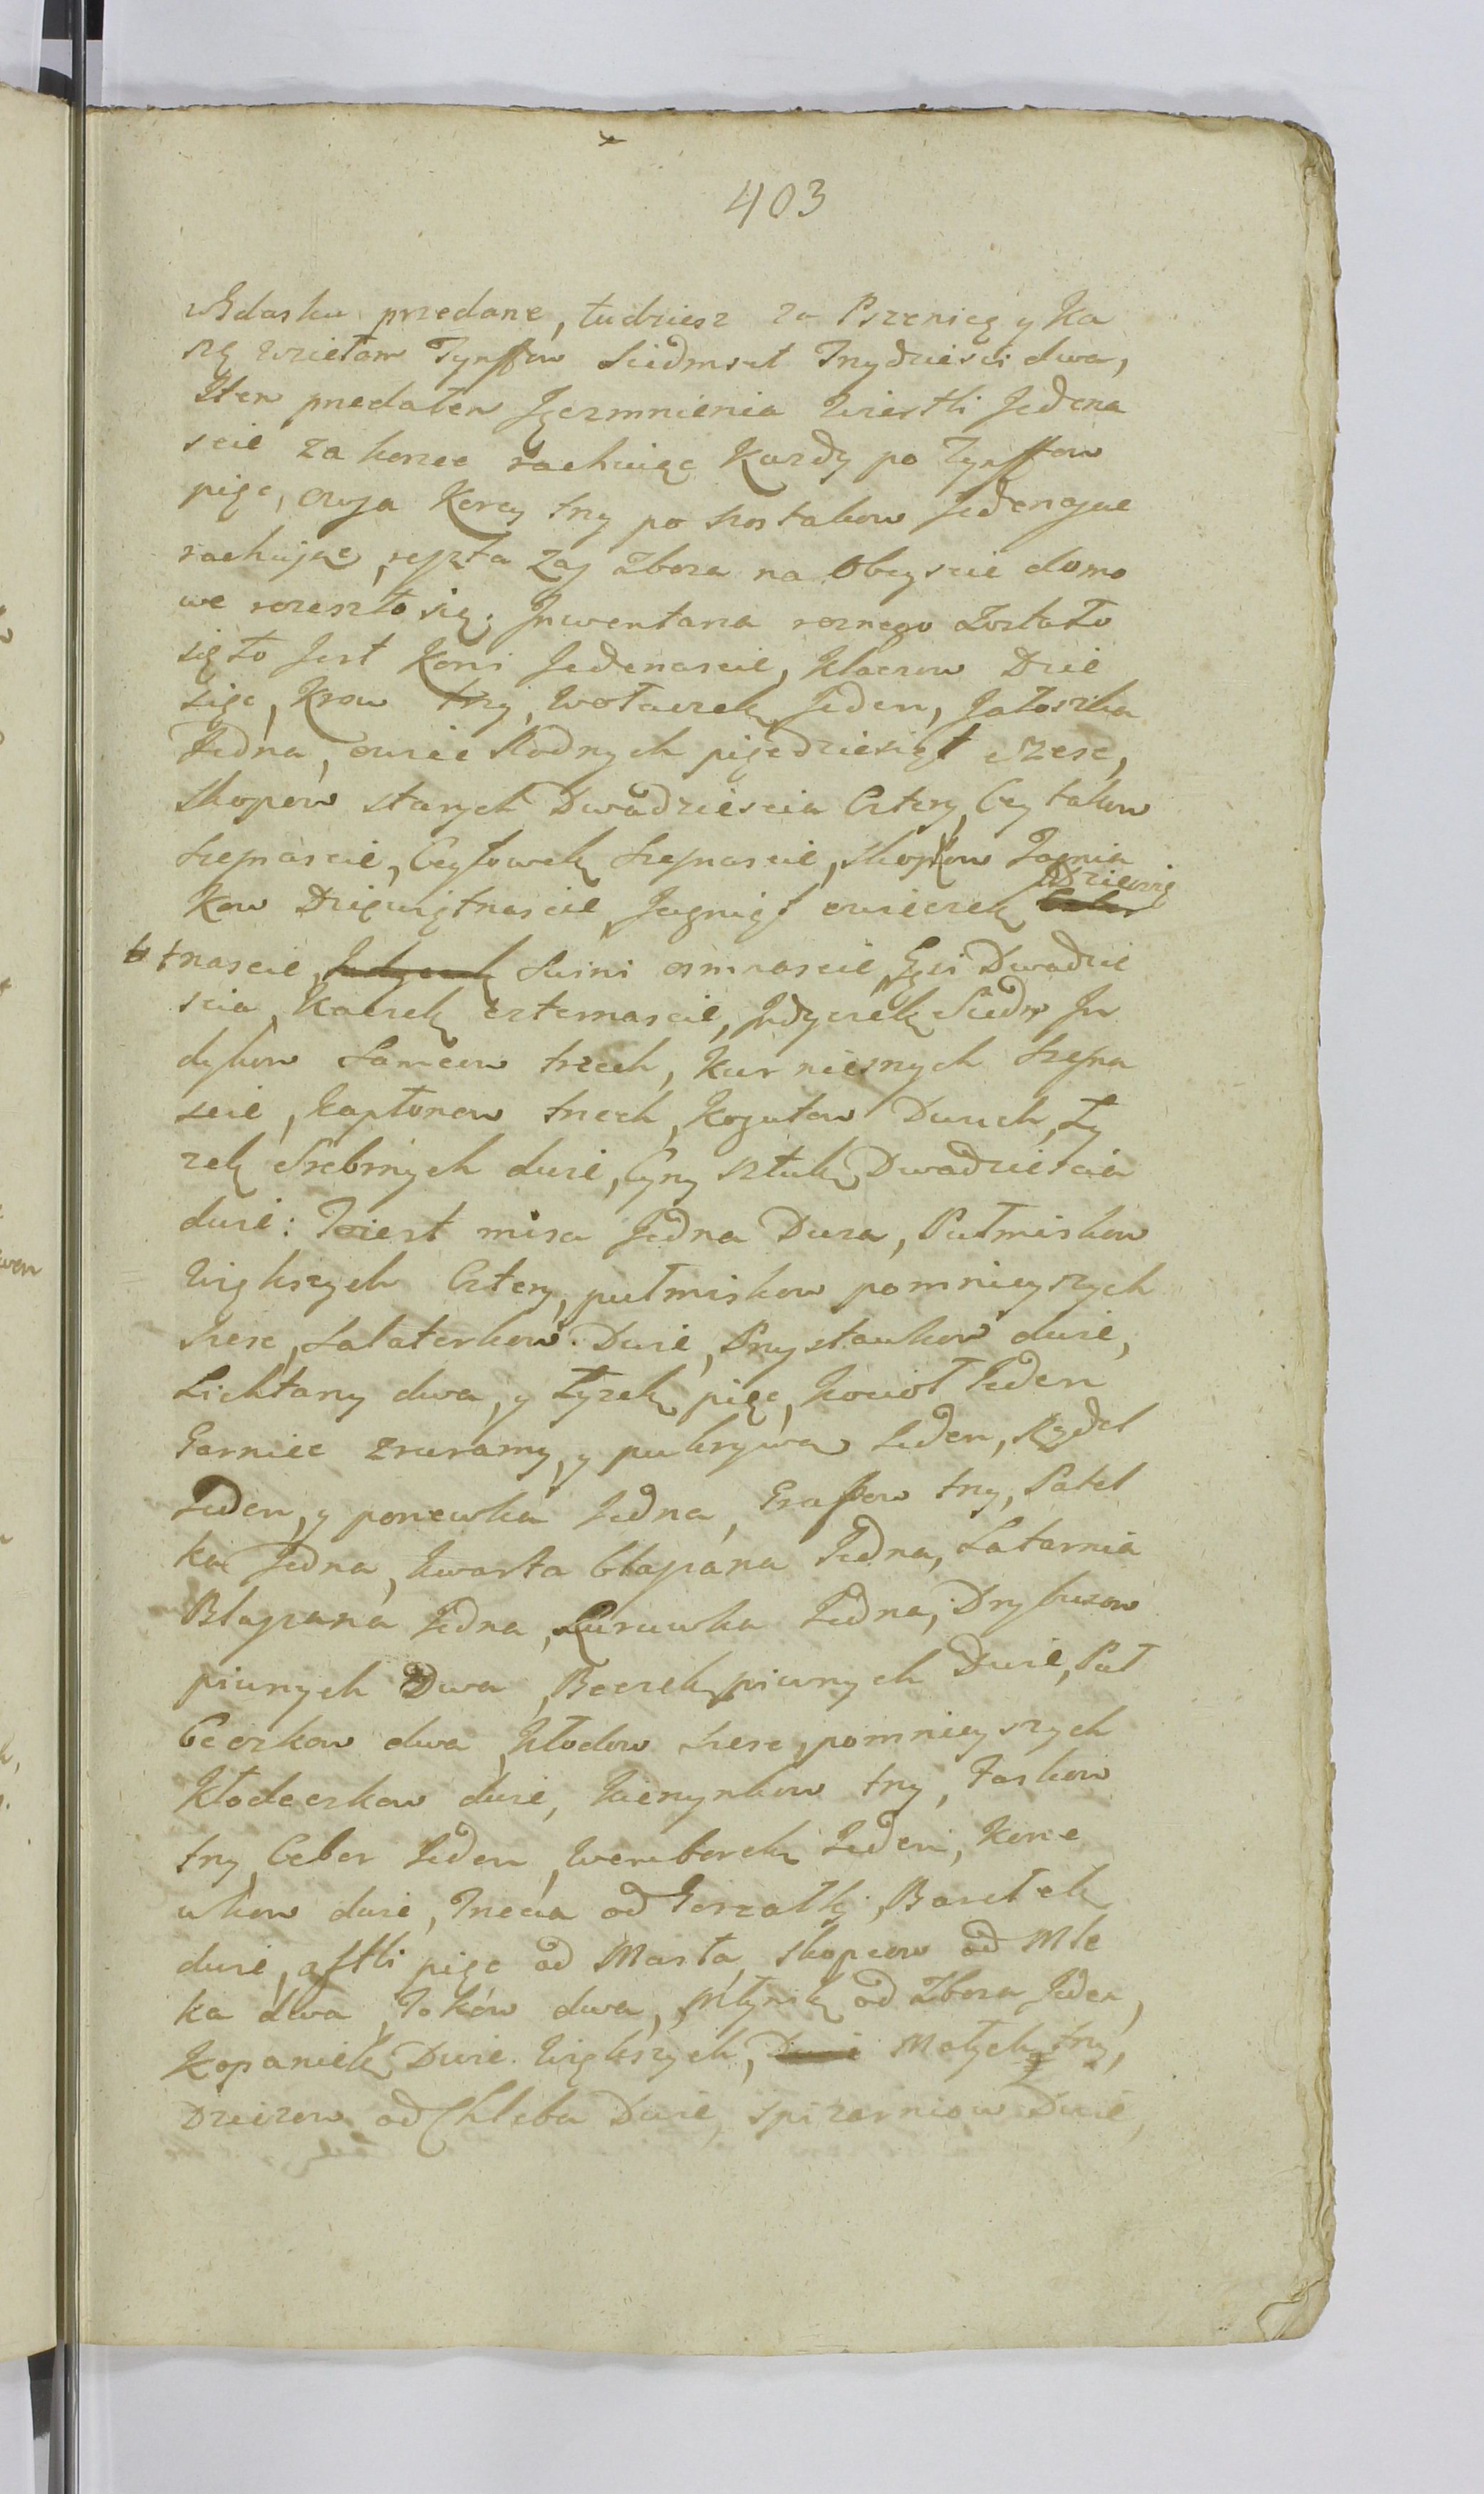 403
wGdasku przedane, tudziesz za Pszenicę y Ka
szę wziełam Tynffow Siedmset Trzydziesci dwa,
Item przedałem Jęczmnienia Wiertli Jedena
scie za korzec rachuięc Kazdy po Tynffow
pięc, owsa Korcy trzy po szostakow Jedenascie
rachujące, reszta zas zboza na Obeyscie domo
we rozeszło się. Inwentarza roznego Zostało
się to Jest Koni Jedenascie, klaczow Dzie
sięc, Krow trzy, wołaczek Jeden, Jałoszka
Jedna, owiec Rodnych pięcdziesiąt szesc,
Skopow starych Dwadziescia Cztery, Ceytakow
szesnascie, Ceytowek szesnascie, skopkow Jagnia
kow Dzięwiętnascie Jagniąt owieczek Dziewię
tnascie, Swini osmnascie, Gęsi Dwadzie
scia, Kaczek czternascie, Jndyczek Siedm Jn
dykow Samcow trzech, Kur niesnych szesna
scie, kapłonow trzech, Kogutow Dwuch, Ły
zek Srebrnych dwie, Cyny sztuk Dwadziescia
dwie: Toiest misa Jedna Duza, Pułmiskow
Większych Cztery, pułmiskow pomnieyszych
szesc, Salaterkow Dwie, Przystawkow dwie,
Lichtarzy dwa, y Łyzek pięc, kocioł Jeden
Garniec zruramy, y pukrywa Jeden, Rydel
Jeden, y ponewka Jedna, Grapow trzy, Patel
ka Jedna, kwarta blaszana Jedna, Latarnia
Blaszana Jedna, Lurowka Jedna, Drybusow
piwnych Dwa, Beczek piwnych Dwie, Puł
beczkow dwa, kłodow szesc, pomnieyszych
Kłodeczkow dwie, kierzynkow trzy, Faskow
trzy, Ceber Jeden, Wemborek Jeden, Kone
wkow dwie, Trzecia od Gorzałki, Baretek
dwie, aftli pięc od Masła, skopcow od Mle
ka dwa, Tokow dwa, Młynik od Zboza Jeden,
Kopaniek Dwie Większych, Małych trzy,
Dzeizow od Chleba Dwie, spizarniow Dwie,